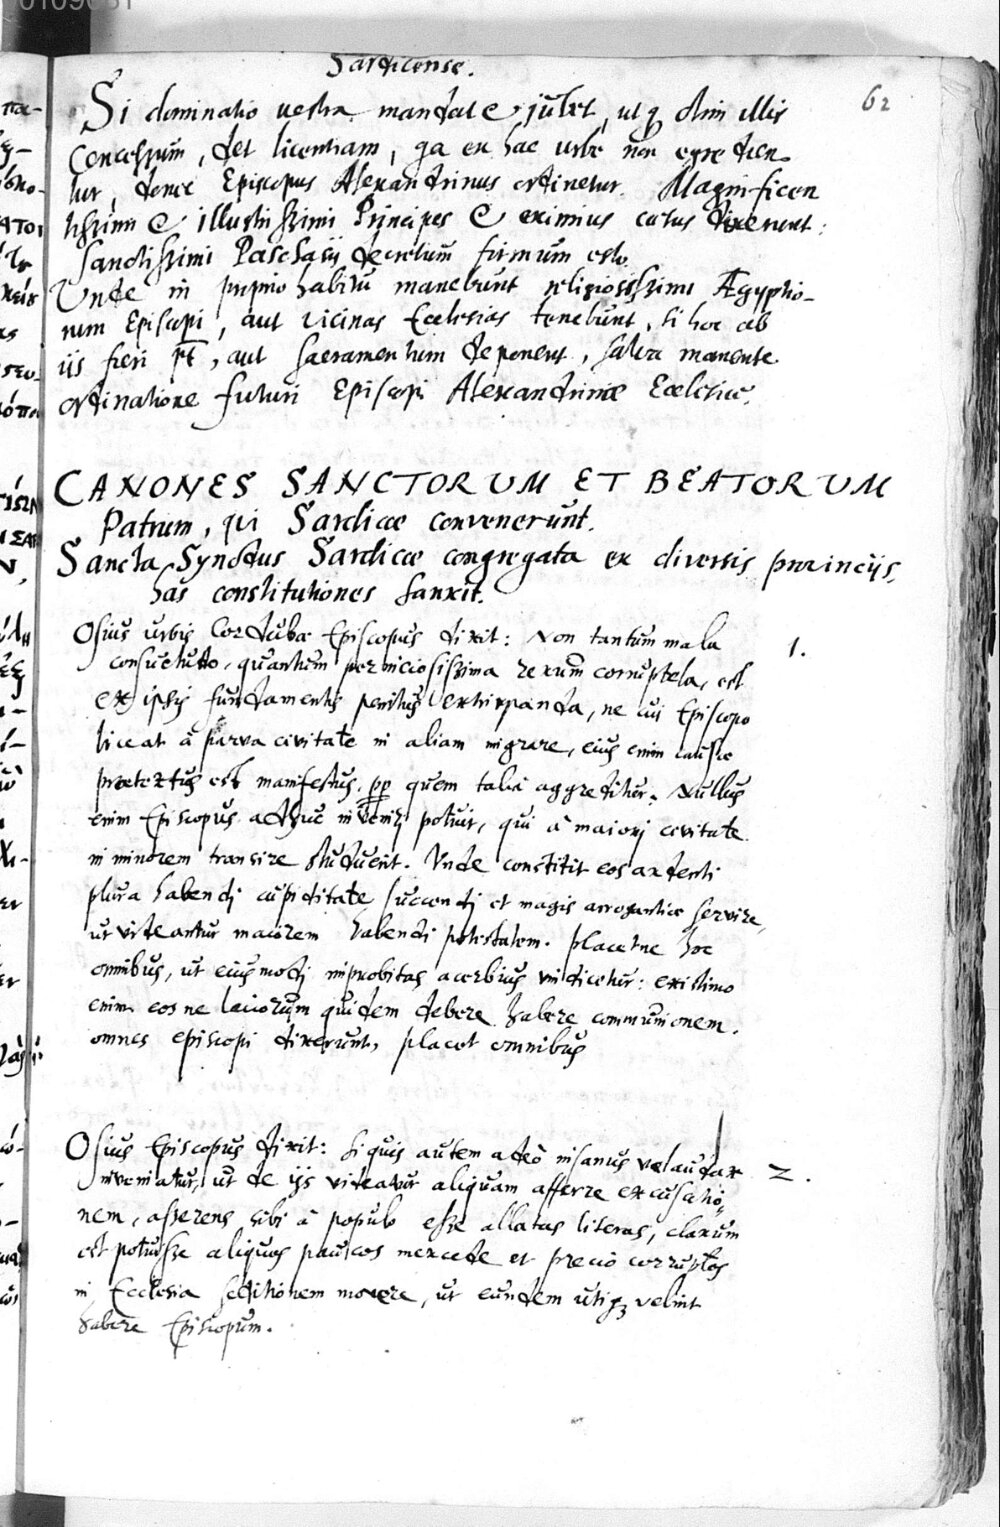 0109081
Sardicense.
62
Si dominatio vestra mandat & jubet, ut q olim illis
concessum, det licentiam, qa ex hac urbe non egredien-
tur, donec Episcopus Alexandrinus ordinetur. Magnificen
tissimi & illustrissimi Principes & eximius cœtus dixerunt:
Sanctissimi Paschasij decretum firmum esto.
Unde in proprio habitu manebunt religiosissimi Ægyptio-
rum Episcopi, aut vicinas Ecclesias tenebunt, si hoc ab
iis fieri pt, aut sacramentum deponent, salva manente
ordinatione futuri Episcopi Alexandrinæ Ecclesiæ.
CANONES SANCTORUM ET BEATORUM
Patrum, qui Sardicæ convenerunt.
Sancta Synodus Sardicæ congregata ex diversis provincijs,
has constitutiones sanxit.
Osius urbis Cordubæ Episcopus dixit: Non tantum mala
1.
consuetudo, quantum perniciosissima rerum corruptela, est
ex ipsis fundamentis penitus extirpanda, ne cui Episcopo
liceat à parva civitate in aliam migrare, eius enim causæ
prætextus est manifestus, pp quem talia aggreditur. Nullus
enim Episcopus adhuc inveniri potuit, qui à maiori civitate
in minorem transire studuerit. Unde constitit eos ardenti
plura habendj cupiditate succendj et magis arrogantiæ servire,
ut videantur maiorem habendi potestatem. placetne hoc
omnibus, ut eiusmodj improbitas acerbius vindicetur: existimo
enim eos ne laicorum quidem debere habere communionem.
omnes episcopi dixerunt, placet omnibus
Osius Episcopus dixit: si quis autem adeò insanus vel audax
2.
inveniatur, ut de ijs videatur aliquam afferre excusatio,,
nem, asserens sibi à populo esse allatas literas, clarum
est potuisse aliquos paucos mercede et precio corruptos
in Ecclesia seditionem movere, ut eundem utiq velint
habere Episcopum.